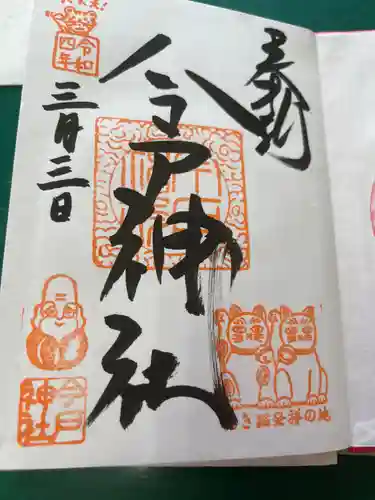 奉拝
今戸神社
令和
四年
三月三日
今戸
神社
招き猫発祥の地